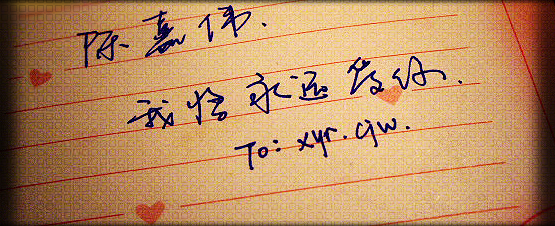 陈嘉伟.
我恰永远爱你.
To: xyr. cjw.